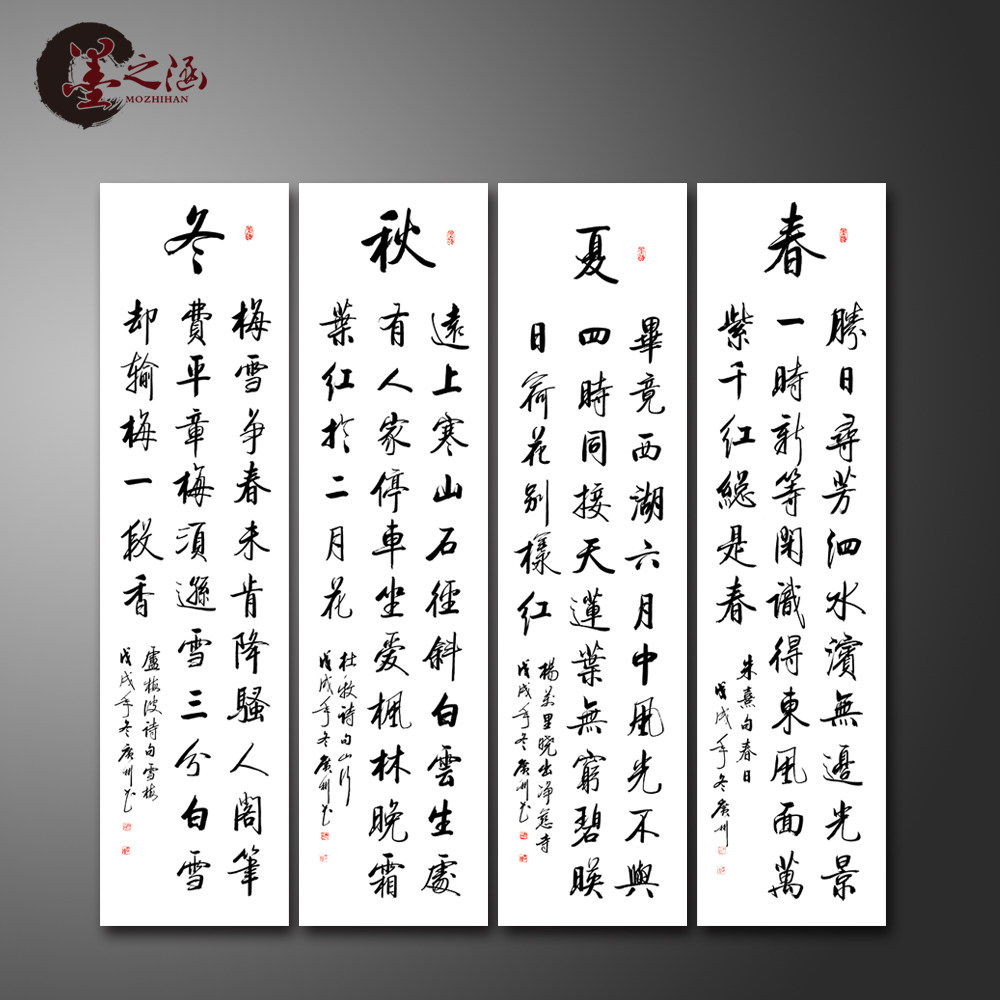 墨之涵
MOZHIHAN
春
勝日尋芳泗水濱無邊光景
一時新等閑識得東風面萬
紫千紅總是春
朱熹句春日
戊戌年冬廣州
夏
畢竟西湖六月中風光不與
四時同接天蓮葉無窮碧映
日荷花别樣紅
楊萬里曉出净慈寺
戊戌年冬廣州
秋
遠上寒山石徑斜白雲生處
有人家停車坐愛楓林晚霜
葉紅於二月花
杜牧詩句山行
戊戌年冬廣州
冬
梅雪争春未肯降騷人閣筆
費平章梅須遜雪三分白雪
却輸梅一段香
盧梅坡詩句雪梅
戊戌年冬廣州